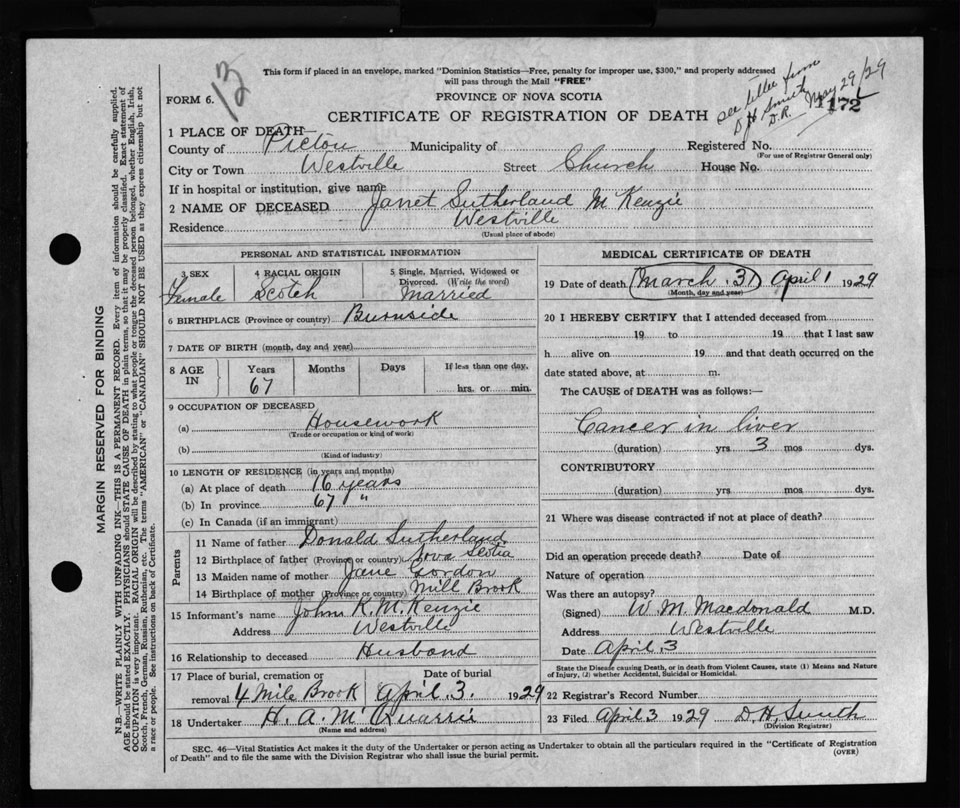 13
This form if placed in an envelope, marked "Dominion Statistics—Free, penalty for improper use, $300," and properly addressed
will pass through the Mail "FREE"
FORM 6.
PROVINCE OF NOVA SCOTIA
CERTIFICATE OF REGISTRATION OF DEATH
see letter from
D H Smith
D.R.
May 29/29
1172
1 PLACE OF DEATH—
County of Pictou Municipality of Registered No.
(For use of Registrar General only)
City or Town Westville Street Church House No.
If in hospital or institution, give name
2 NAME OF DECEASED Janet Sutherland McKenzie
Residence Westville
(Usual place of abode)
PERSONAL AND STATISTICAL INFORMATION
3 SEX 4 RACIAL ORIGIN 5 Single, Married, Widowed or
Divorced. (Write the word)
Female Scotch Married
6 BIRTHPLACE (Province or country) Burnside
7 DATE OF BIRTH (month, day and year)
8 AGE IN Years Months Days If less than one day,
67 hrs. or min.
9 OCCUPATION OF DECEASED
(a) Housework
(Trade or occupation or kind of work)
(b)
(Kind of industry)
10 LENGTH OF RESIDENCE (in years and months)
(a) At place of death 16 years
(b) In province 67 "
(c) In Canada (if an immigrant)
Parents
11 Name of father Donald Sutherland
12 Birthplace of father (Province or country) Nova Scotia
13 Maiden name of mother Jane Gordon
14 Birthplace of mother (Province or country) Mill Brook
15 Informant's name John K. McKenzie
Address Westville
16 Relationship to deceased Husband
17 Place of burial, cremation or Date of burial
removal 4 Mile Brook April 3. 1929
18 Undertaker H. A. McQuarrie
(Name and address)
MEDICAL CERTIFICATE OF DEATH
19 Date of death (March 31) April 1 1929
(Month, day and year)
20 I HEREBY CERTIFY that I attended deceased from
19 to 19 that I last saw
h alive on 19 and that death occurred on the
date stated above, at m.
The CAUSE of DEATH was as follows:—
Cancer in liver
(duration) yrs 3 mos dys.
CONTRIBUTORY
(duration) yrs mos dys.
21 Where was disease contracted if not at place of death?
Did an operation precede death? Date of
Nature of operation
Was there an autopsy?
(Signed) W M. Macdonald M.D.
Address Westville
Date April 3
State the Disease causing Death, or in death from Violent Causes, state (1) Means and Nature
of Injury, (2) whether Accidental, Suicidal or Homicidal.
22 Registrar's Record Number
23 Filed April 3 1929 D. H. Smith
(Division Registrar)
SEC. 46—Vital Statistics Act makes it the duty of the Undertaker or person acting as Undertaker to obtain all the particulars required in the "Certificate of Registration
of Death" and to file the same with the Division Registrar who shall issue the burial permit.
(OVER)
MARGIN RESERVED FOR BINDING
N.B.—WRITE PLAINLY, WITH UNFADING INK—THIS IS A PERMANENT RECORD. Every item of information should be carefully supplied.
AGE should be stated EXACTLY. PHYSICIANS should STATE CAUSE OF DEATH in plain terms, so that it may be properly classified. Exact statement of
OCCUPATION is very important. RACIAL ORIGIN will be described by stating to what people or tongue the deceased person belonged, whether English, Irish,
Scotch, French, German, Russian, Ruthenian, etc. The terms "AMERICAN" or "CANADIAN" SHOULD NOT BE USED as they express citizenship but not
a race or people. See instructions on back of Certificate.